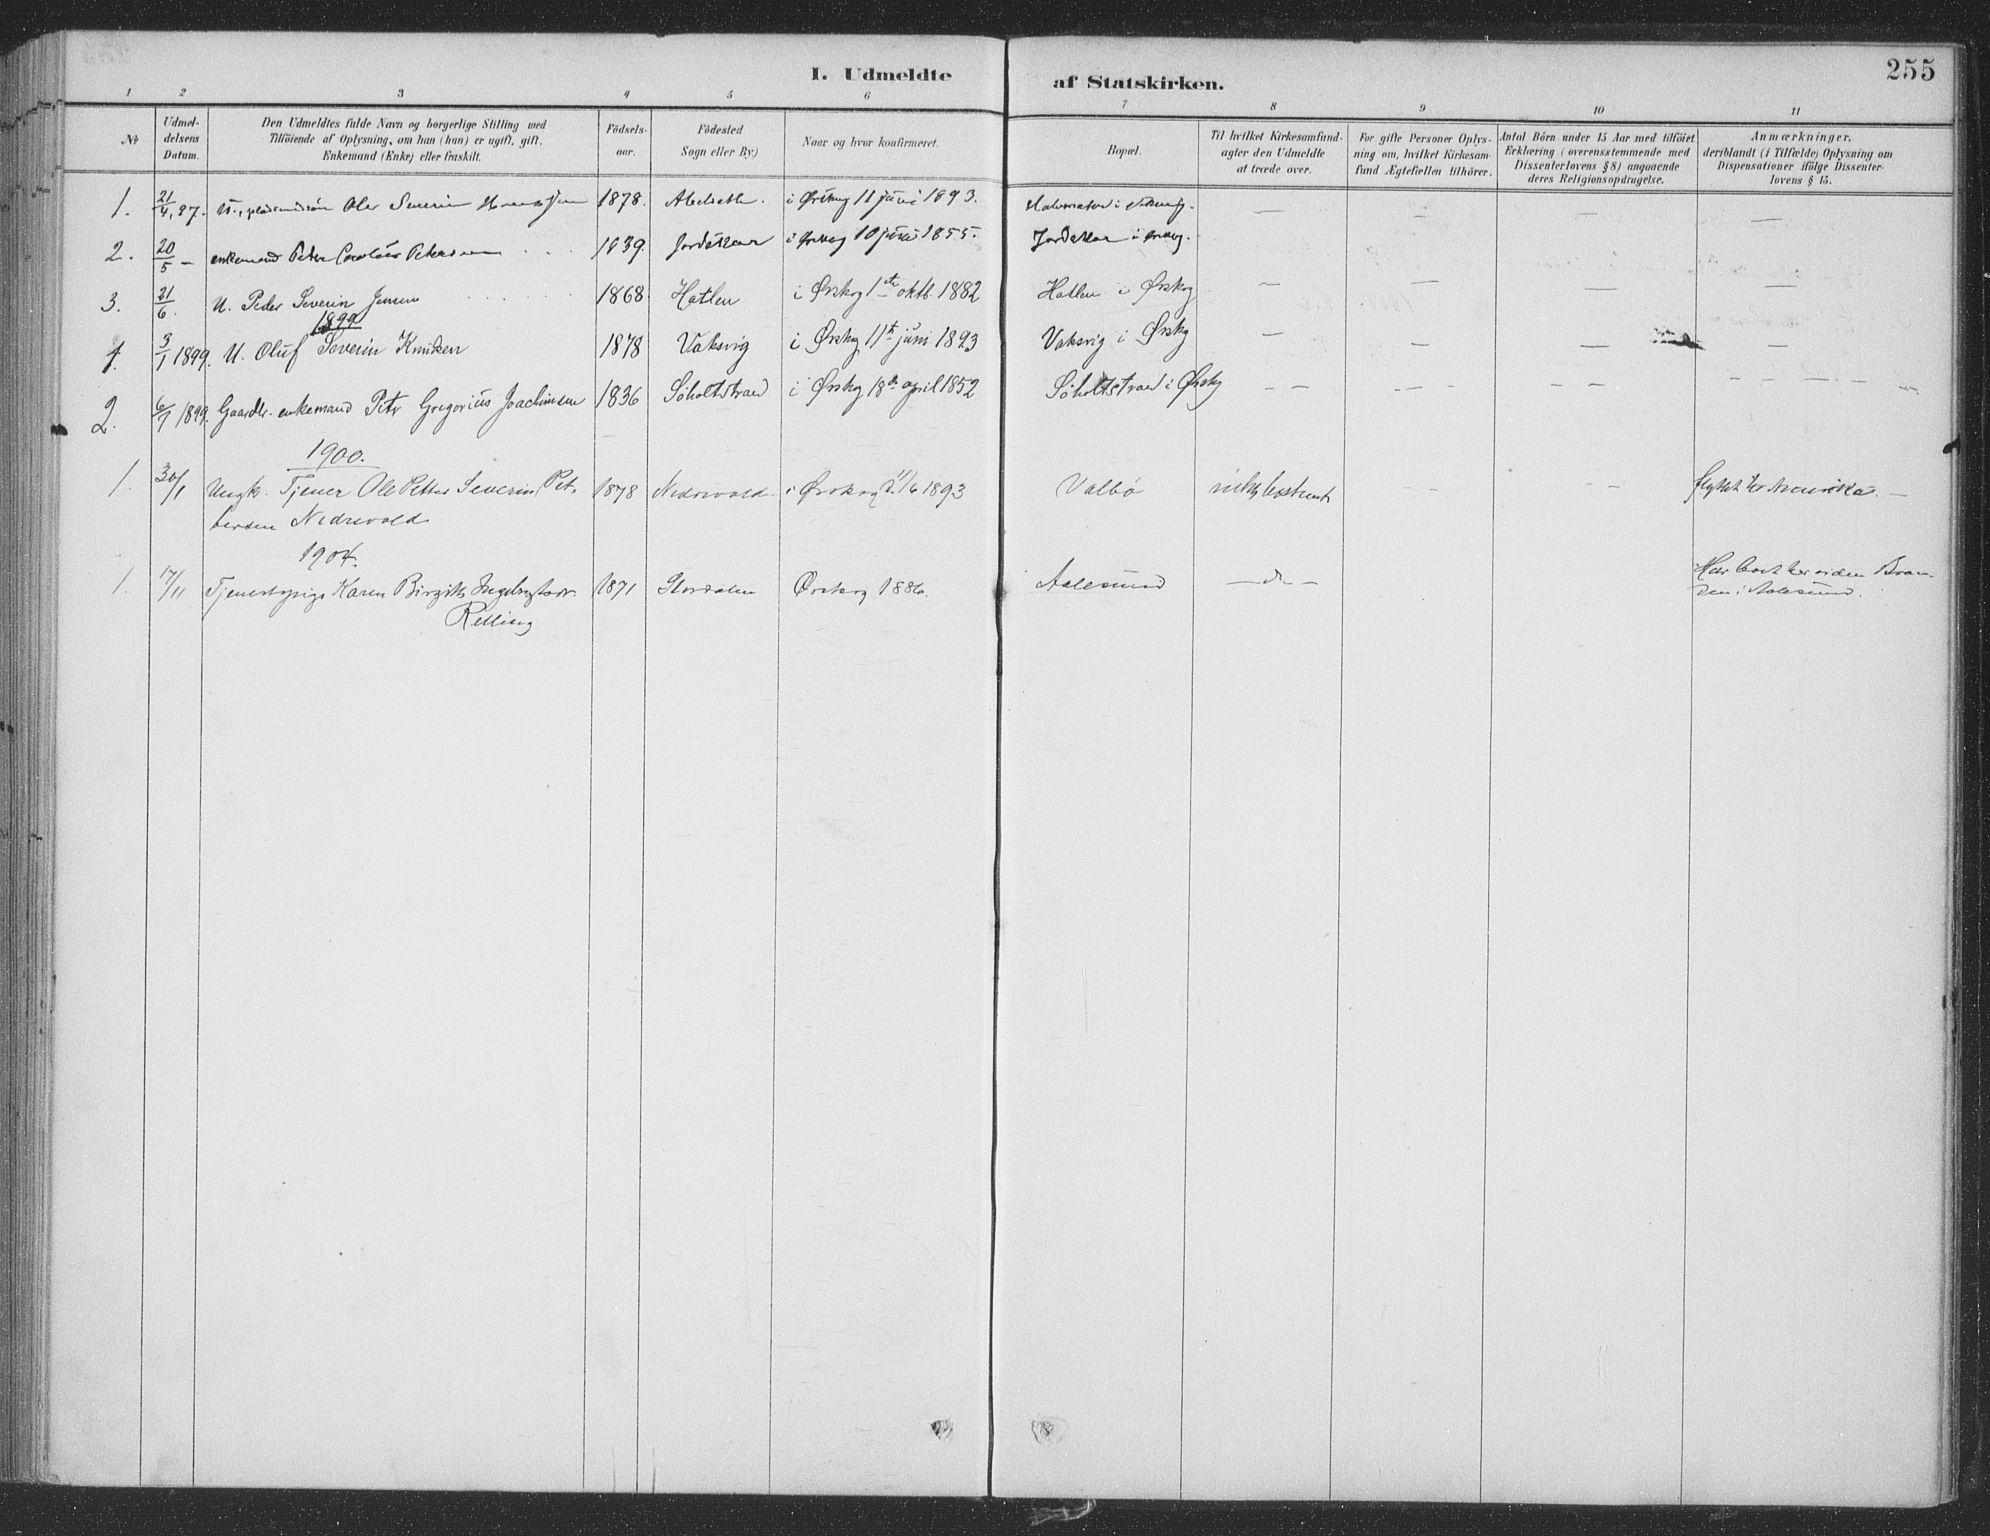 I. Udmeldte af Statskirken.
255
1 2 3 4 5 6 7 8 9 10 11
№
Udmeldelsens Datum.
Den Udmeldtes fulde Navn og borgerlige Stilling med
Tilföiende af Oplysning, om han (hun) er ugift, gift,
Enkemand (Enke) eller fraskilt.
Födselsaar.
Födested
Sogn eller By)
Naar og hvor konfirmeret.
Bopæl.
Til hvilket Kirkesamfund-
agter den Udmeldte
at træde over.
For gifte Personer Oplys-
ning om, hvilket Kirkesam-
fund Ægtefællen tilhörer.
Antal Börn under 15 Aar med tilföiet
Erklæring (overensstemmende med
Dissenterlovens § 8) angaaende
deres Religionsopdragelse.
Anmærkninger,
deriblandt (i Tilfælde) Oplysning om
Dispensationer ifölge Dissenter-
lovens § 15.
1. 21/4, 97. U., Ole Severin 1878. i Ørskog 11 juni 1893. — — — —
2. 20/5 — enkemand Peter Petersen 1839. i Ørskog 10 juni 1855. i Ørskog. — — — —
3. 21/6. U. Peder Severin Jensen 1868. Hatlen i Ørskog 1ste oktb. 1882 Hatlen i Ørskog — — — —
1899
1. 3/1 1899. U. Oluf Severin Knudsen 1878 Vaksvig i Ørskog 11te juni 1893 Vaksvig i Ørskog — — — —
2. 6/9 1899. Gaardbr. enkemand Petr Gregorius Joachimsen 1836 Søholtstrand i Ørskog 18de april 1852 Søholtstrand i Ørskog — — — — — — —
1900.
1. 30/1 Ungk. Tjener Ole Petter Severin Pet- 1878 Nedrevold i Ørskog 11/6 1893 Valbø — — — — flyttet til Amerika. —
tersen Nedrevold
1904.
1. 17/11 Tjenestepige Karen Birgitte Ingebrigtsdr. 1871 Stordalen Ørskog 1886. Aalesund — d — Bran-
Relling
den i Aalesund.